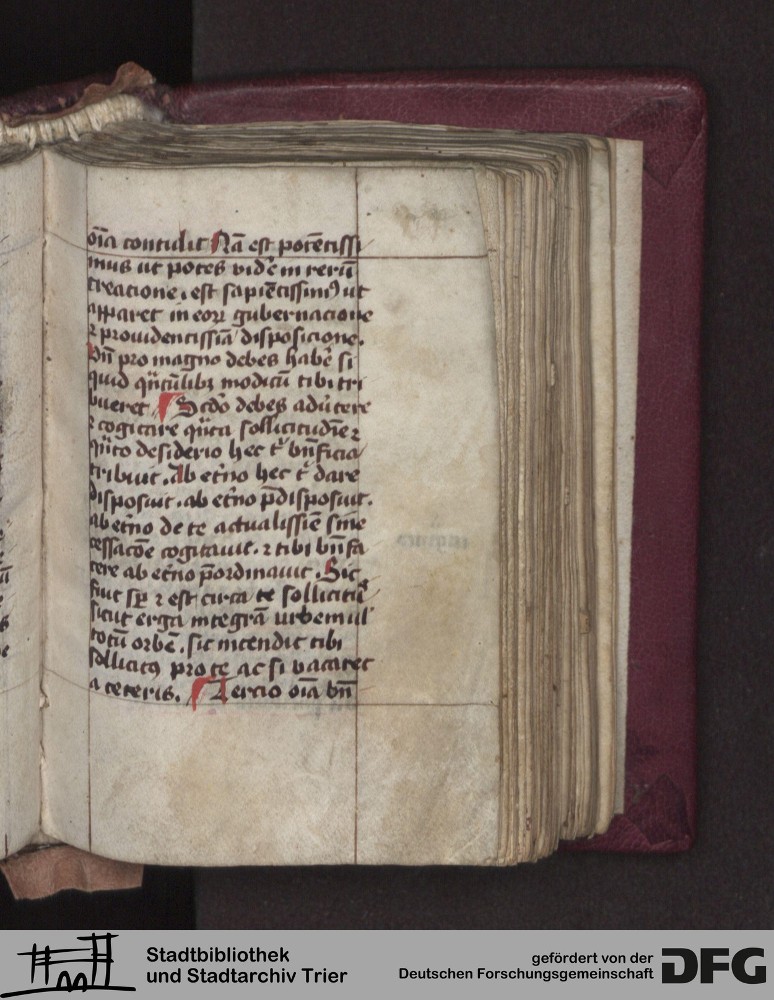 oīa contulit Nā est potētissi
mus ut potes vidē in rerū
creacione. est sapiētissimꝰ ut
apparet in eoꝝ gubernacione
⁊ prouidentissīa disposicione.
Vn̄ pro magno debes habē si
quid qn̄tūlibꝫ modicū tibi tri
bueret Scd̄o debes adūtere
⁊ cogitare qn̄ta sollicitudīe ⁊
qn̄to desiderio hec t̄ bn̄ficia
tribuit. Ab et̄no hec t̄ dare
disposuit. ab et̄no p̄disposuit.
ab et̄no de te actualissīe sine
cessacōe cogitauit. ⁊ tibi bn̄fa
cere ab et̄no p̄ordinauit. Sic
fuit sꝑ ⁊ est circa te sollicitꝰ
sicut erga integrā urbem ul'
totū orbē. sic intendit tibi
sollicitꝰ pro te ac si vacaret
a ceteris. Tercio oīa bn̄
Stadtbibliothek
und Stadtarchiv Trier
gefördert von der
Deutschen Forschungsgemeinschaft
DFG